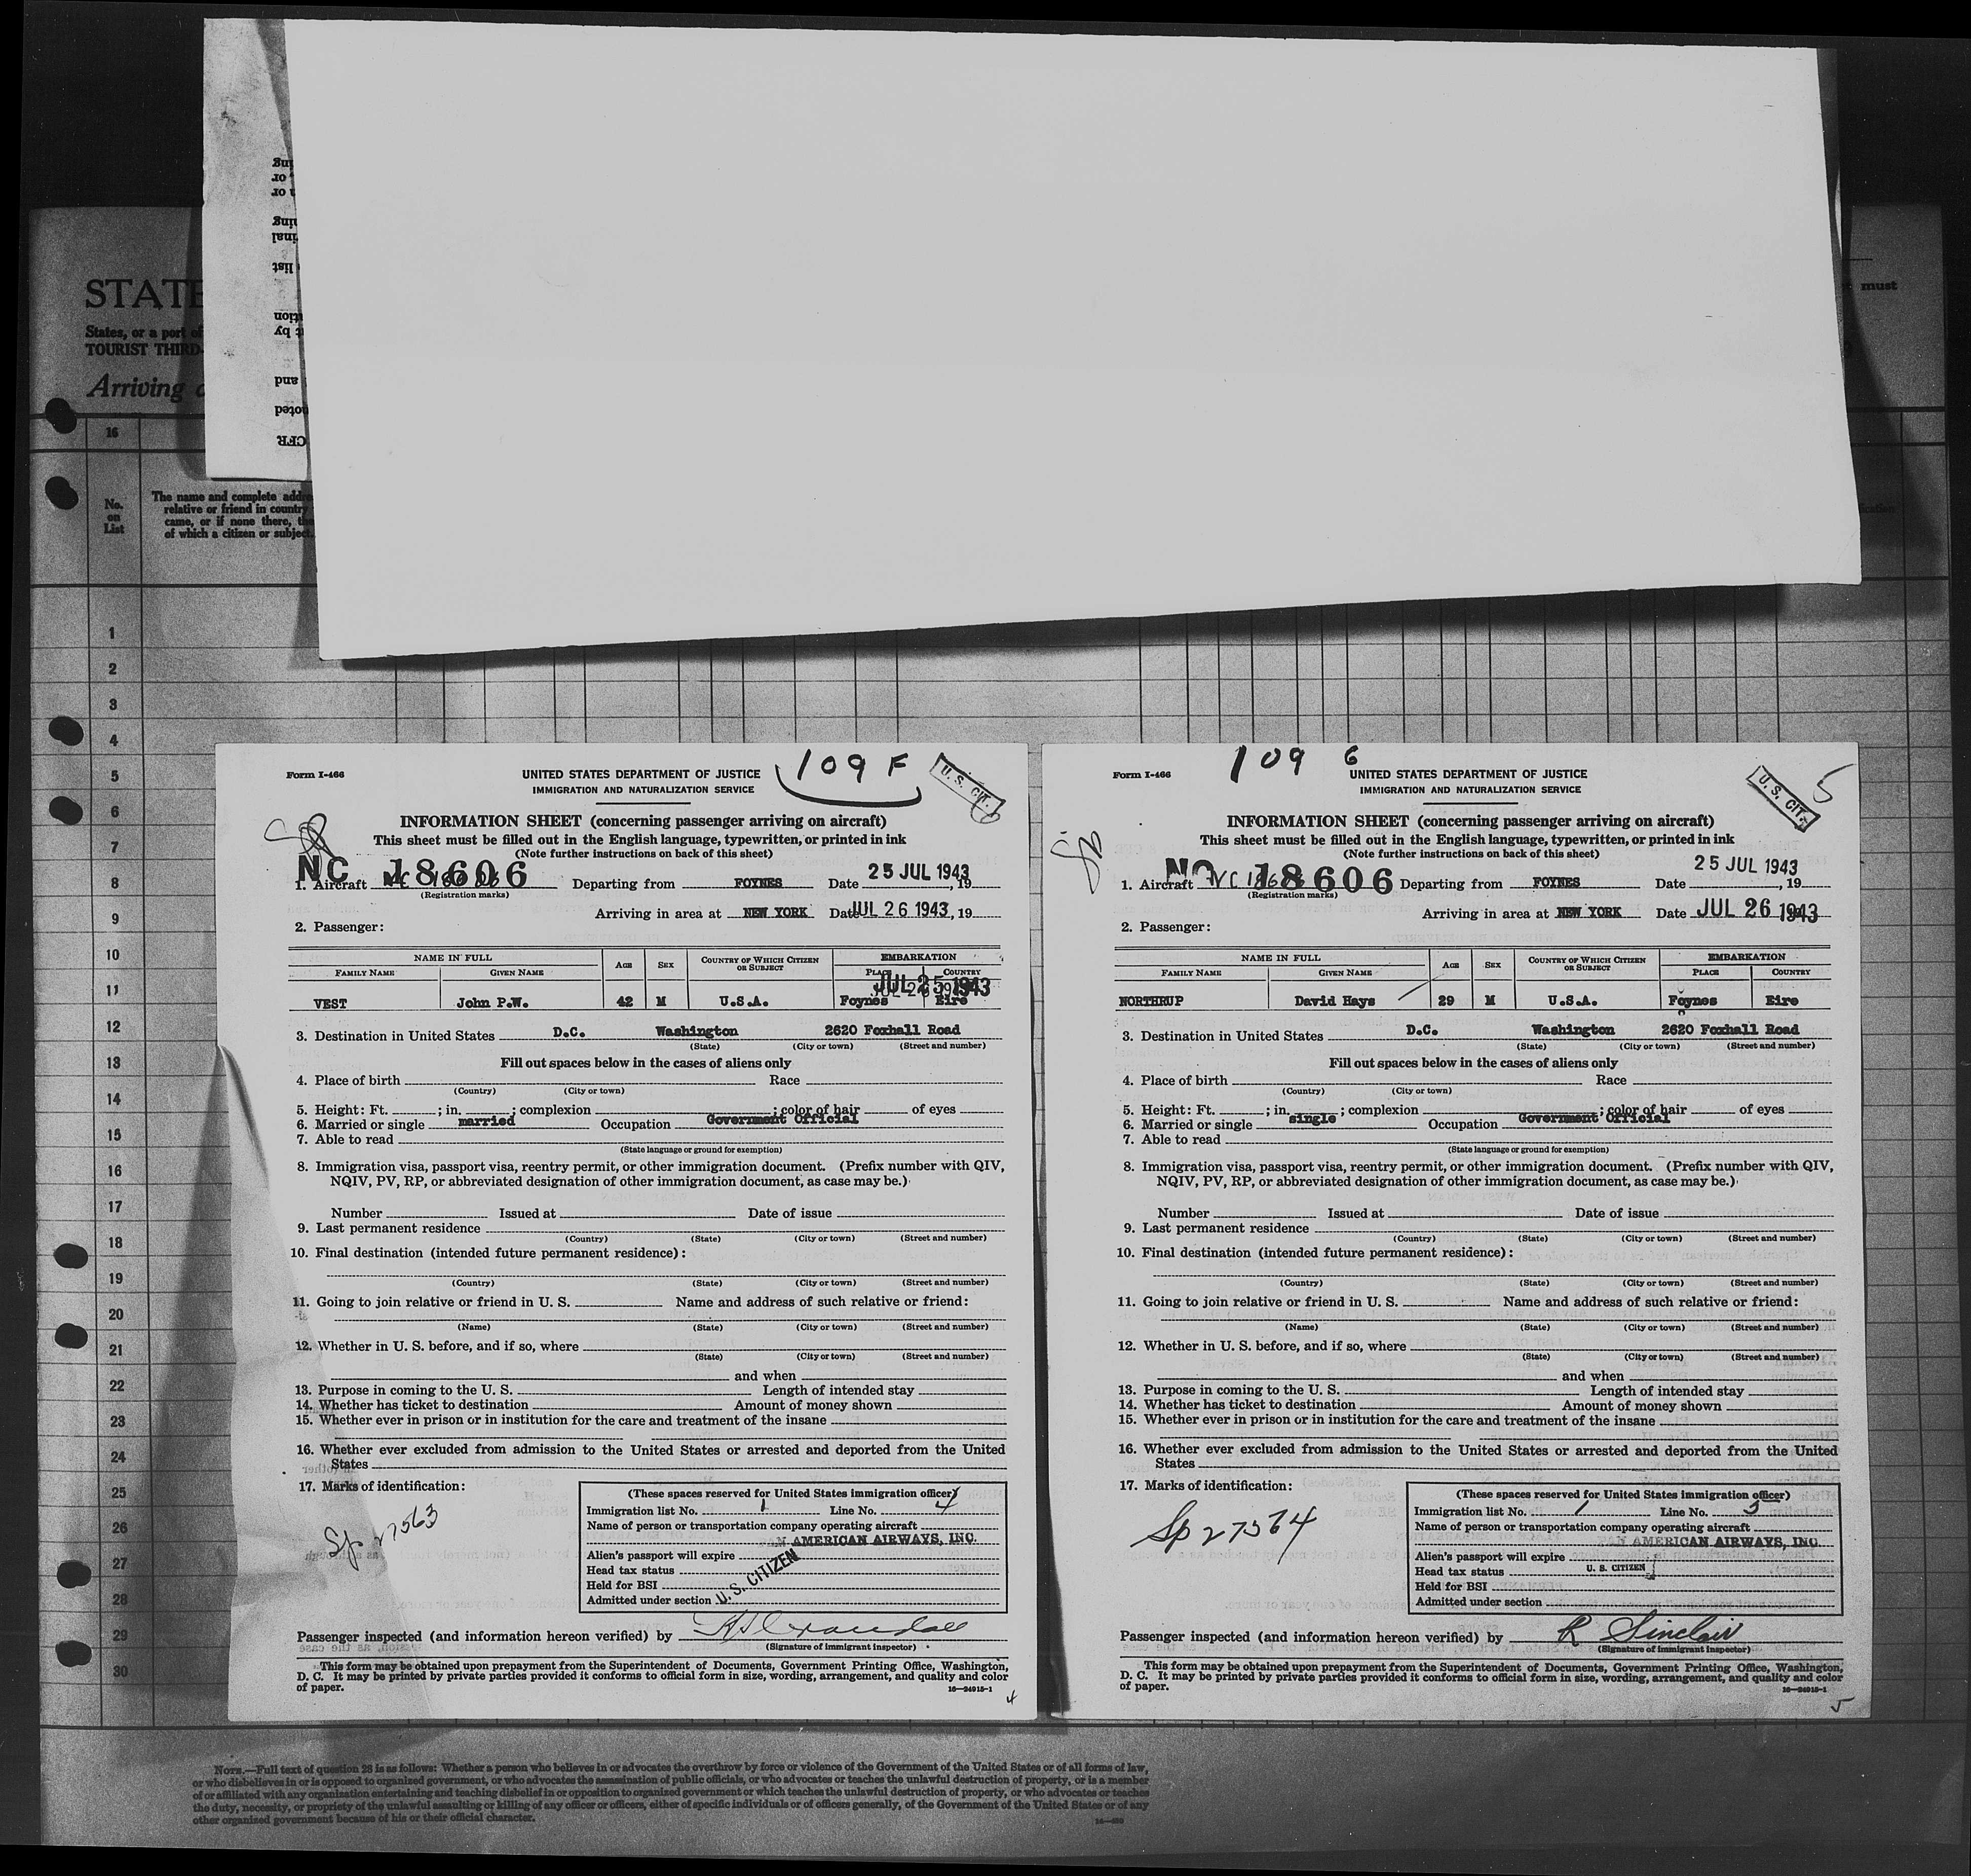 STATE
States, or a port of
TOURIST THIRD-
Arriving
must
16
No.
on
List
The name and complete addre
relative or friend in country
came, or if none there, th
of which a citizen or subject.
1
2
3
4
5
6
7
8
9
10
11
12
13
14
15
16
17
18
19
20
21
22
23
24
25
26
27
28
29
30
Form I-466
109 F
U. S. CIT.
UNITED STATES DEPARTMENT OF JUSTICE
IMMIGRATION AND NATURALIZATION SERVICE
INFORMATION SHEET (concerning passenger arriving on aircraft)
This sheet must be filled out in the English language, typewritten, or printed in ink
(Note further instructions on back of this sheet)
NC 18606
25 JUL 1943
1. Aircraft Departing from FOYNES Date , 19
(Registration marks)
Arriving in area at NEW YORK Date JUL 26 1943, 19
2. Passenger:
NAME IN FULL AGE SEX COUNTRY OF WHICH CITIZEN OR SUBJECT EMBARKATION
FAMILY NAME GIVEN NAME PLACE COUNTRY
JUL 25 1943
VEST John P.W. 42 M U.S.A. Foynes Eire
3. Destination in United States D.C. Washington 2620 Foxhall Road
(State) (City or town) (Street and number)
Fill out spaces below in the cases of aliens only
4. Place of birth Race
(Country) (City or town)
5. Height: Ft. ; in. ; complexion ; color of hair of eyes
6. Married or single married Occupation Government Official
7. Able to read
(State language or ground for exemption)
8. Immigration visa, passport visa, reentry permit, or other immigration document. (Prefix number with QIV,
NQIV, PV, RP, or abbreviated designation of other immigration document, as case may be.)
Number Issued at Date of issue
9. Last permanent residence
(Country) (State) (City or town) (Street and number)
10. Final destination (intended future permanent residence):
(Country) (State) (City or town) (Street and number)
11. Going to join relative or friend in U. S. Name and address of such relative or friend:
(Name) (State) (City or town) (Street and number)
12. Whether in U. S. before, and if so, where
(State) (City or town) (Street and number)
and when
13. Purpose in coming to the U. S. Length of intended stay
14. Whether has ticket to destination Amount of money shown
15. Whether ever in prison or in institution for the care and treatment of the insane
16. Whether ever excluded from admission to the United States or arrested and deported from the United
States
17. Marks of identification:
Sp 27563
(These spaces reserved for United States immigration officer)
Immigration list No. 1 Line No. 4
Name of person or transportation company operating aircraft
AMERICAN AIRWAYS, INC.
Alien's passport will expire
Head tax status
Held for BSI
Admitted under section
U. S. CITIZEN
Passenger inspected (and information hereon verified) by
(Signature of immigrant inspector)
This form may be obtained upon prepayment from the Superintendent of Documents, Government Printing Office, Washington,
D. C. It may be printed by private parties provided it conforms to official form in size, wording, arrangement, and quality and color
of paper. 16—24915-1
4
Form I-466
109 G
U. S. CIT.
5
UNITED STATES DEPARTMENT OF JUSTICE
IMMIGRATION AND NATURALIZATION SERVICE
INFORMATION SHEET (concerning passenger arriving on aircraft)
This sheet must be filled out in the English language, typewritten, or printed in ink
(Note further instructions on back of this sheet)
NC 18606
25 JUL 1943
1. Aircraft Departing from FOYNES Date , 19
(Registration marks)
Arriving in area at NEW YORK Date JUL 26 1943
2. Passenger:
NAME IN FULL AGE SEX COUNTRY OF WHICH CITIZEN OR SUBJECT EMBARKATION
FAMILY NAME GIVEN NAME PLACE COUNTRY
NORTHRUP David Hays 29 M U.S.A. Foynes Eire
3. Destination in United States D.C. Washington 2620 Foxhall Road
(State) (City or town) (Street and number)
Fill out spaces below in the cases of aliens only
4. Place of birth Race
(Country) (City or town)
5. Height: Ft. ; in. ; complexion ; color of hair of eyes
6. Married or single single Occupation Government Official
7. Able to read
(State language or ground for exemption)
8. Immigration visa, passport visa, reentry permit, or other immigration document. (Prefix number with QIV,
NQIV, PV, RP, or abbreviated designation of other immigration document, as case may be.)
Number Issued at Date of issue
9. Last permanent residence
(Country) (State) (City or town) (Street and number)
10. Final destination (intended future permanent residence):
(Country) (State) (City or town) (Street and number)
11. Going to join relative or friend in U. S. Name and address of such relative or friend:
(Name) (State) (City or town) (Street and number)
12. Whether in U. S. before, and if so, where
(State) (City or town) (Street and number)
and when
13. Purpose in coming to the U. S. Length of intended stay
14. Whether has ticket to destination Amount of money shown
15. Whether ever in prison or in institution for the care and treatment of the insane
16. Whether ever excluded from admission to the United States or arrested and deported from the United
States
17. Marks of identification:
Sp 27564
(These spaces reserved for United States immigration officer)
Immigration list No. 1 Line No. 5
Name of person or transportation company operating aircraft
PAN AMERICAN AIRWAYS, INC.
Alien's passport will expire
Head tax status U. S. CITIZEN
Held for BSI
Admitted under section
Passenger inspected (and information hereon verified) by R Sinclair
(Signature of immigrant inspector)
This form may be obtained upon prepayment from the Superintendent of Documents, Government Printing Office, Washington,
D. C. It may be printed by private parties provided it conforms to official form in size, wording, arrangement, and quality and color
of paper. 16—24915-1
5
NOTE.—Full text of question 28 is as follows: Whether a person who believes in or advocates the overthrow by force or violence of the Government of the United States or of all forms of law,
or who disbelieves in or is opposed to organized government, or who advocates the assassination of public officials, or who advocates or teaches the unlawful destruction of property, or is a member
of or affiliated with any organization entertaining and teaching disbelief in or opposition to organized government or which teaches the unlawful destruction of property, or who advocates or teaches
the duty, necessity, or propriety of the unlawful assaulting or killing of any officer or officers, either of specific individuals or of officers generally, of the Government of the United States or of any
other organized government because of his or their official character.